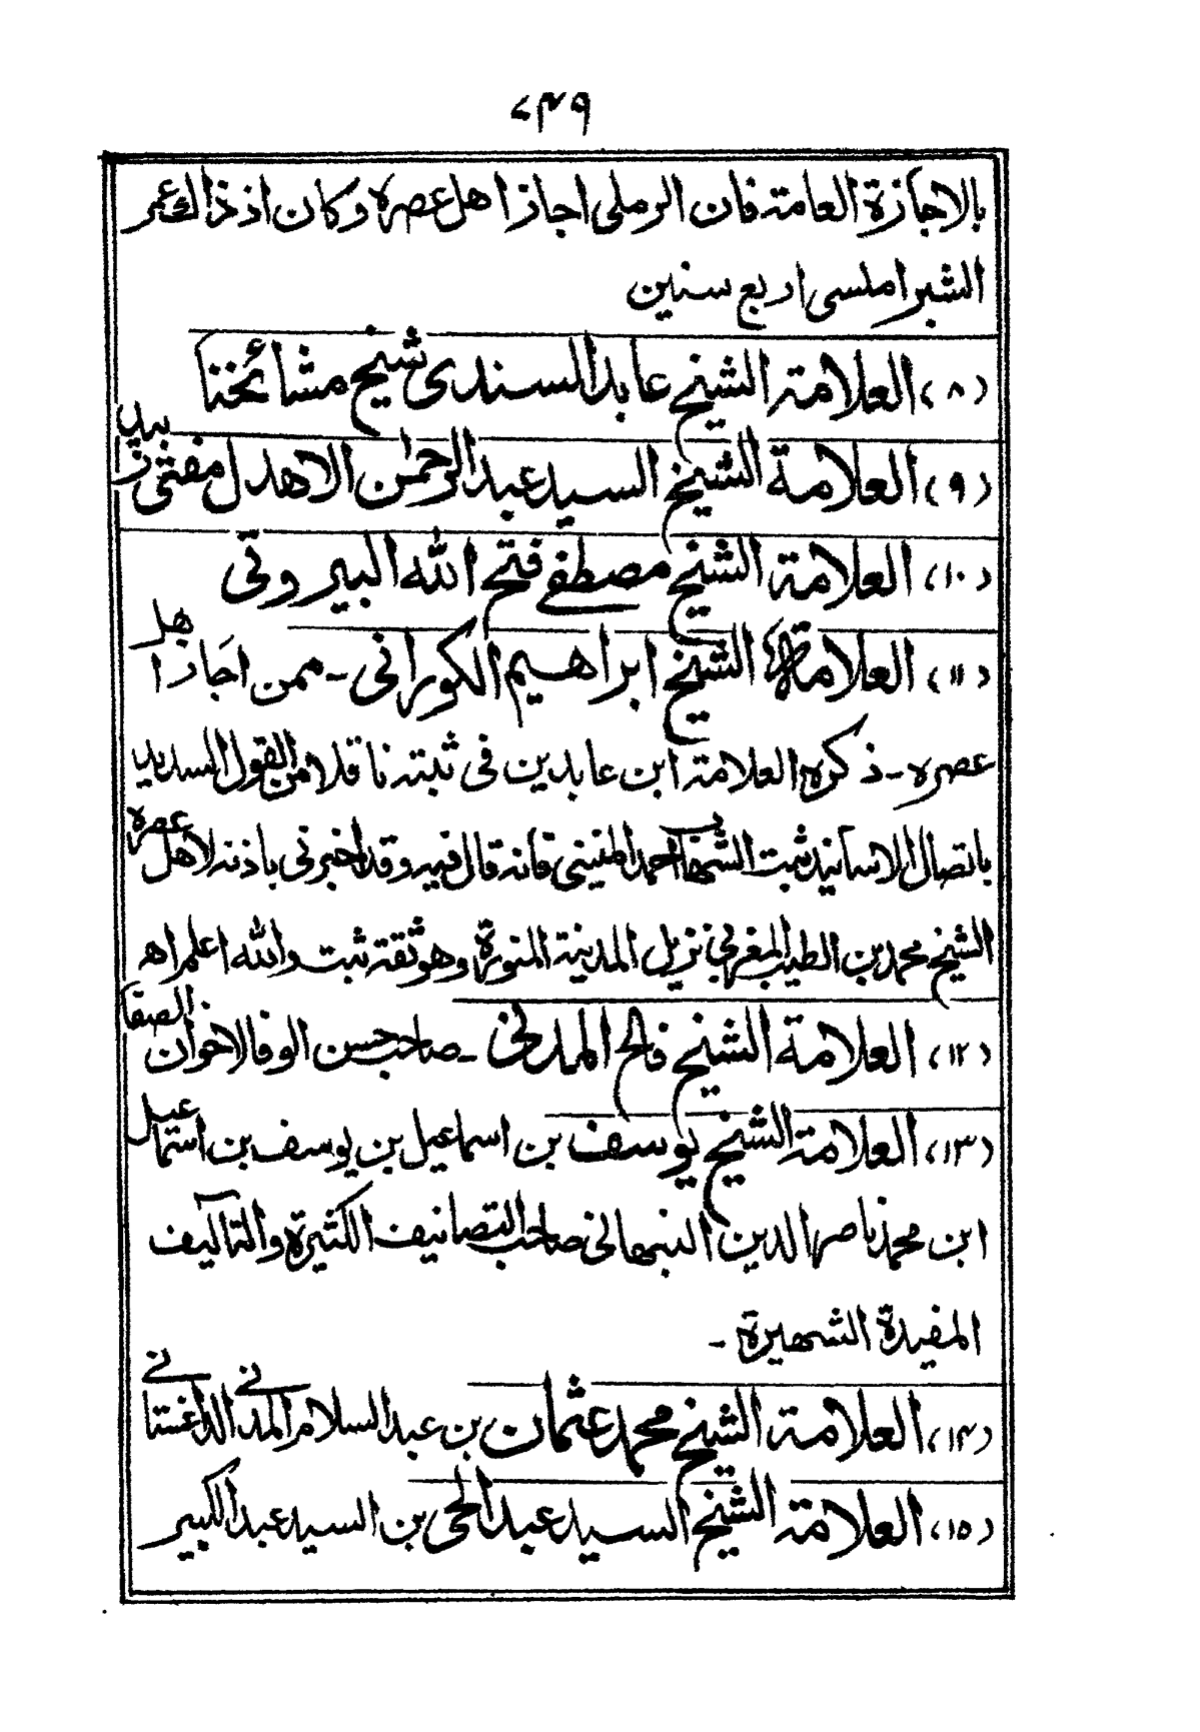 ٧٤٩
بالاجازة العامة فان الرملى اجاز اهل عصره وكان اذ ذاك عمر
الشبراملسى اربع سنين
(٨) العلامة الشيخ عابد السندى شيخ مشائخنا
(٩) العلامة الشيخ السيد عبد الرحمٰن الاهدل مفتى زبيد
(١٠) العلامة الشيخ مصطفى فتح الله البيروتى
(١١) العلامة الشيخ ابراهيم الكورانى - ممن اجاز اهل
عصره - ذكره العلامة ابن عابدين فى ثبته ناقلا من القول السديد
باتصال الاسانيد ثبت الشهاب احمد المنينى فانه قال فيه وقد اخبرنى باذنه لاهل عصره
الشيخ محمد بن الطيب المغربي نزيل المدينة المنورة وهو ثقة ثبت والله اعلم اه
(١٢) العلامة الشيخ فالح المدنى - صاحب حسن الوفا لاخوان الصفا
(١٣) العلامة الشيخ يوسف بن اسماعيل بن يوسف بن اسماعيل
ابن محمد ناصر الدين النبهانى صاحب التصانيف الكثيرة والتآليف
المفيدة الشهيرة -
(١٤) العلامة الشيخ محمد عثمان بن عبد السلام المدنى الداغستانى
(١٥) العلامة الشيخ السيد عبد الحى بن السيد عبد الكبير